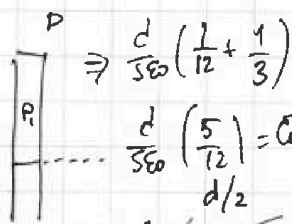 D
⇒ d/(Sε0) (1/12 + 1/3)
P₁
d/(Sε0) (5/12) =
d/2